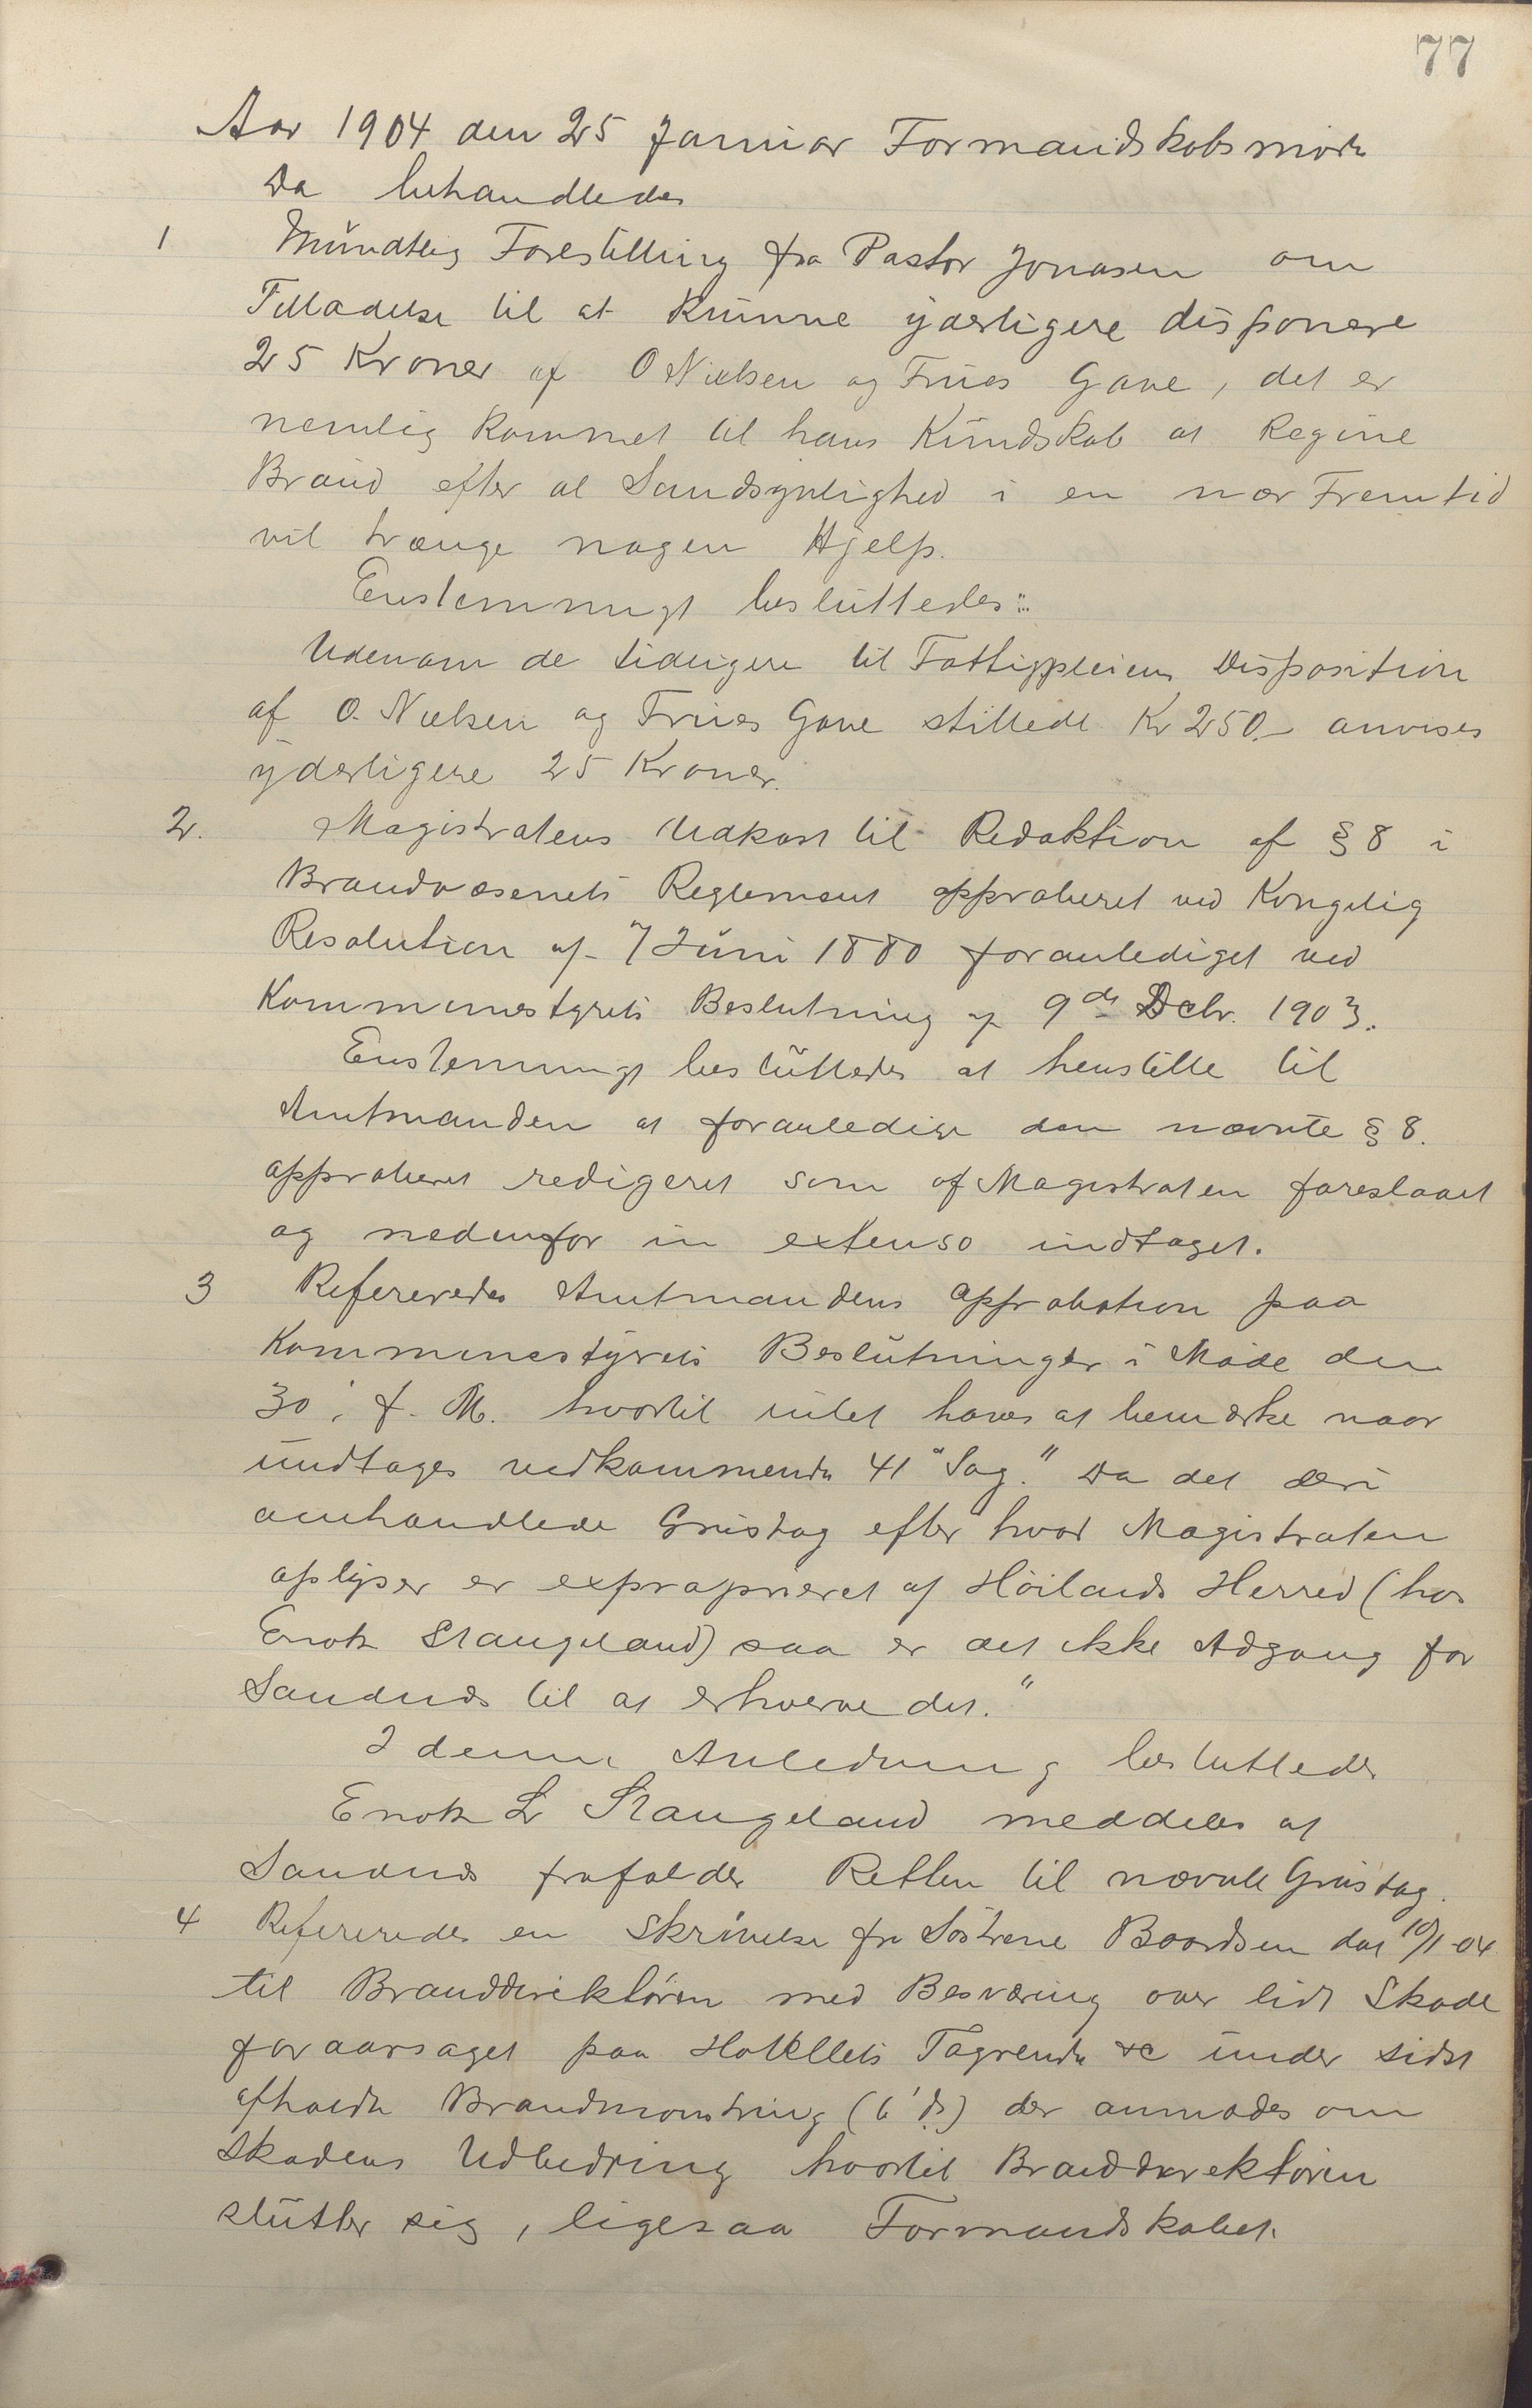 77
Aar 1904 den 25 Januar Formandskabsmøde
Da behandledes
1 Mundtlig Forestilling fra Pastor Jonasen om
Tilladelse til at kunne yderligere disponere
25 Kroner af O Nielsen og Frues Gave, det er
nemlig kommet til hans Kundskab at Regine
Braud efter al Sandsynlighed i en nær Fremtid
vil trænge nogen Hjelp.
Enstemmigt besluttedes:
Udenom de tidligere til Fattigpleiens Disposition
af O. Nielsen og Frues Gave stillede Kr 250.- anvises
yderligere 25 Kroner.
2. Magistratens Udkast til Redaktion af § 8 i
Brandvæsenets Reglement approberet ved Kongelig
Resolution af 7 Juni 1880 foranlediget ved
Kommunestyrets Beslutning af 9de Decbr. 1903.
Enstemmigt besluttedes at henstille til
Amtmanden at foranledige den nævnte § 8.
approberet redigeret som af Magistraten foreslaaet
og nedenfor in extenso indtaget.
3 Refereredes Amtmandens approbation paa
Kommunestyrets Beslutninger i Møde den
30' f. M. hvortil intet haves at bemærke naar
undtages vedkommende 41 "Sag." Da det deri
omhandlede Grustag efter hvad Magistraten
oplyser er exproprieret af Höilands Herred (hos
Enok Stangeland) saa er det ikke Adgang for
Sandnes til at erhverve det."
I denne Anledning besluttedes
Enok L Stangeland meddeles at
Sandnes frafalder Retten til nævnte Grustag.
4 Refereredes en Skrivelse fra Söstrene Baardsen dat 10/1-04
til Branddirektören med Besværing over lidt Skade
foraarsaget paa Hotellets Tagrende &c under sidst
afholdte Brandmønstring (6' ds) der anmodes om
Skadens Udbedring hvortil Branddirektören
slutter sig, ligesaa Formandskabet.